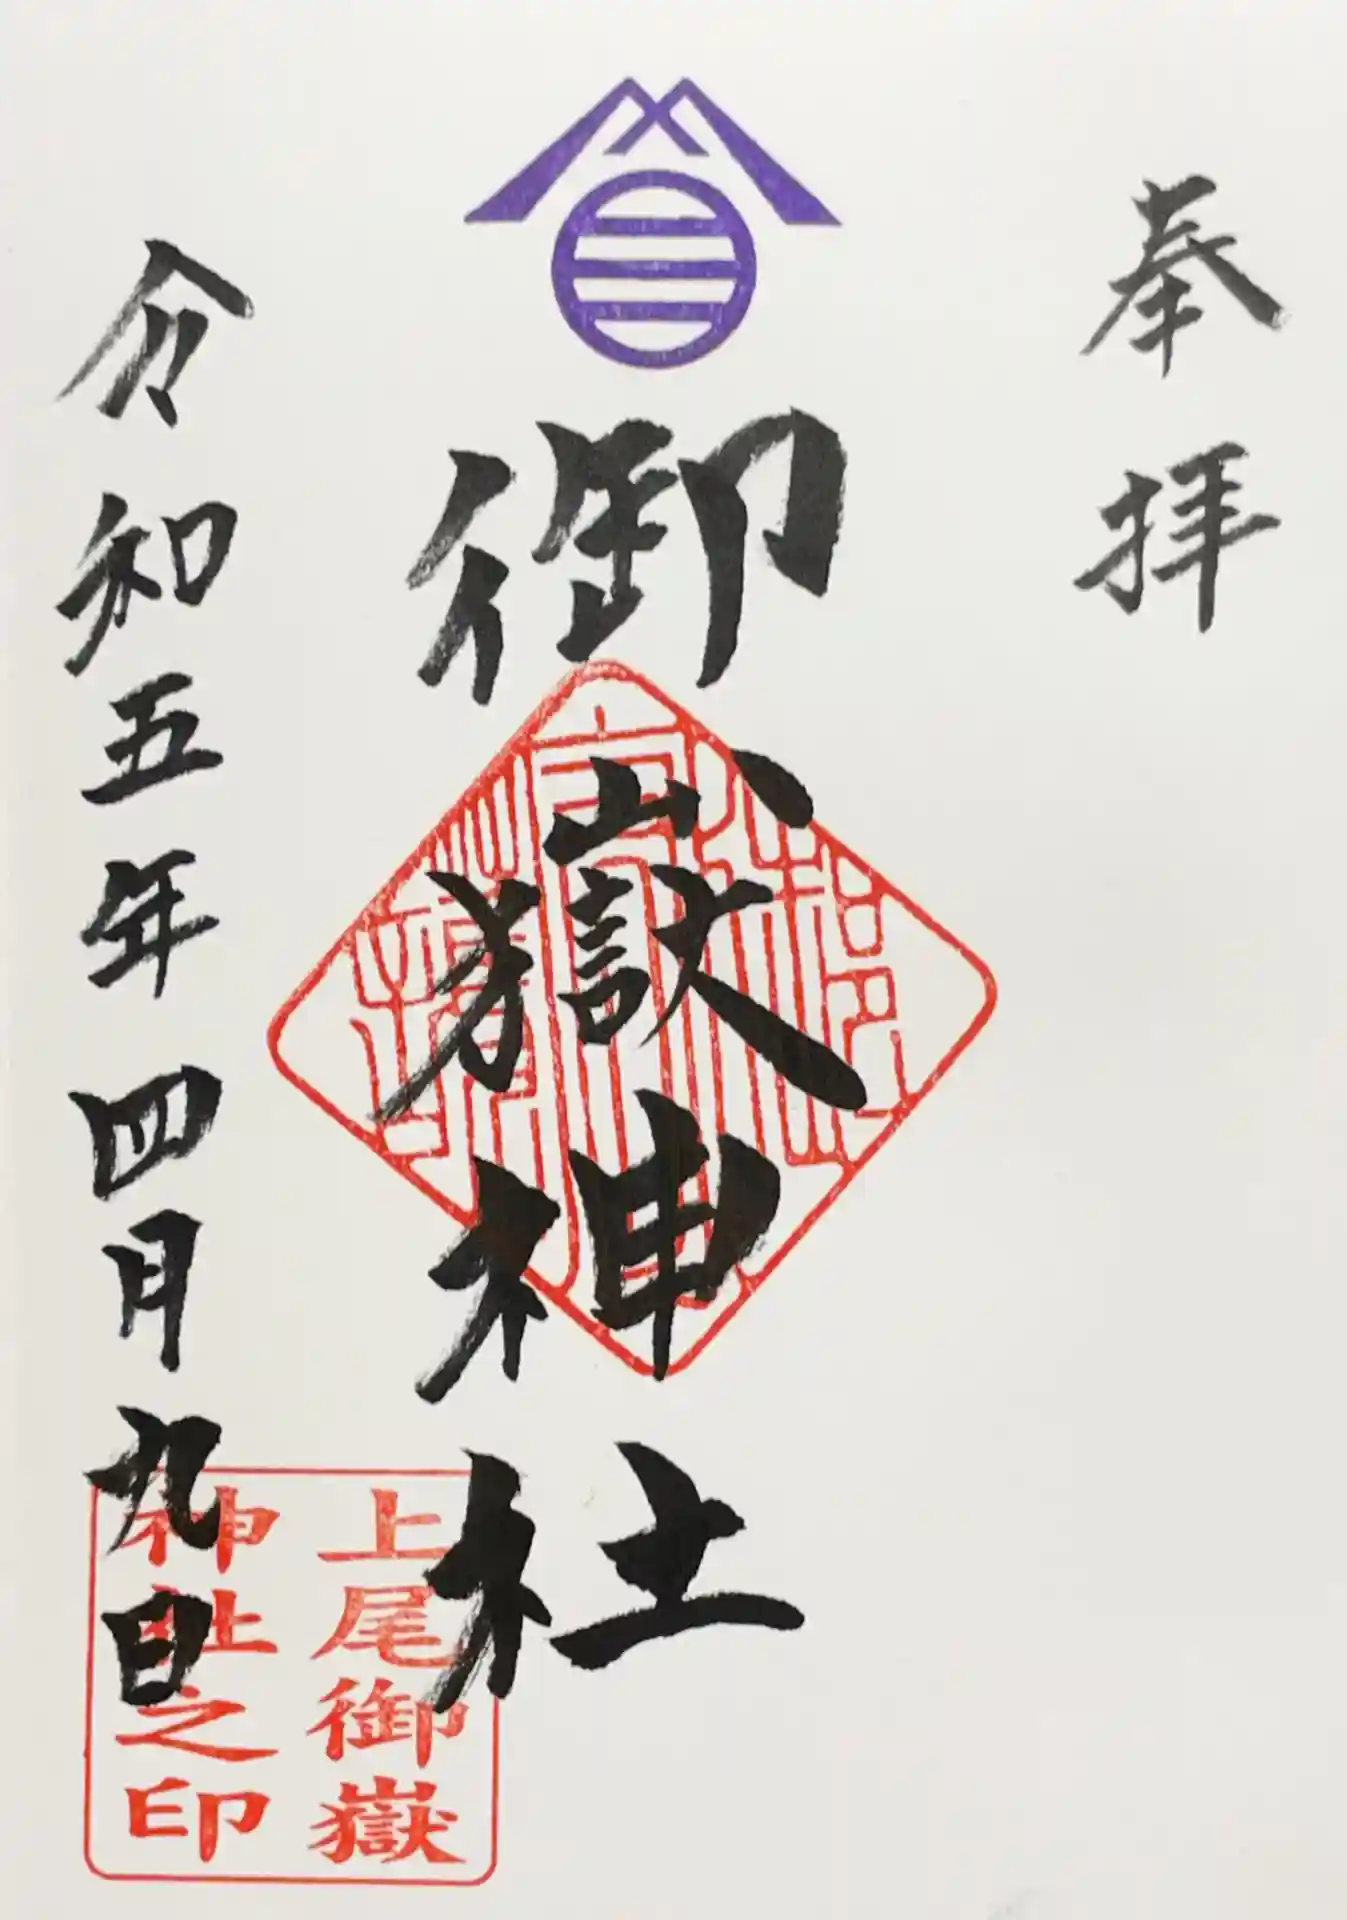 奉拝
御嶽神社
令和五年四月九日
上尾御嶽
神社之印